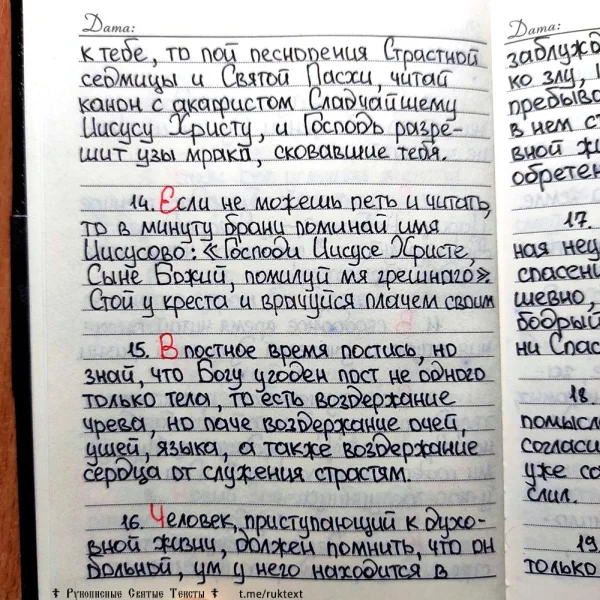 Дата:
к тебе, то пой песнопения Страстной
седмицы и Святой Пасхи, читай
канон с акафистом Сладчайшему
Иисусу Христу, и Господь разре-
шит узы мрака, сковавшие тебя.
14. Если не можешь петь и читать,
то в минуту брани поминай имя
Иисусово: «Господи Иисусе Христе,
Сыне Божий, помилуй мя грешнаго».
Стой у креста и врачуйся плачем своим
15. В постное время постись, но
знай, что Богу угоден пост не одного
только тела, то есть воздержание
чрева, но паче воздержание очей,
ушей, языка, а также воздержание
сердца от служения страстям.
16. Человек, приступающий к духо-
вной жизни, должен помнить, что он
больной, ум у него находится в
Дата:
заблужд
ко злу,
пребыва
в нем с
вной жи
обретен
17.
ная неу
спасени
шевно,
бодрый
ни Спас
18.
помысл
согласи
уже со
слил.
19.
только
✝ Рукописные Святые Тексты ✝ t.me/ruktext